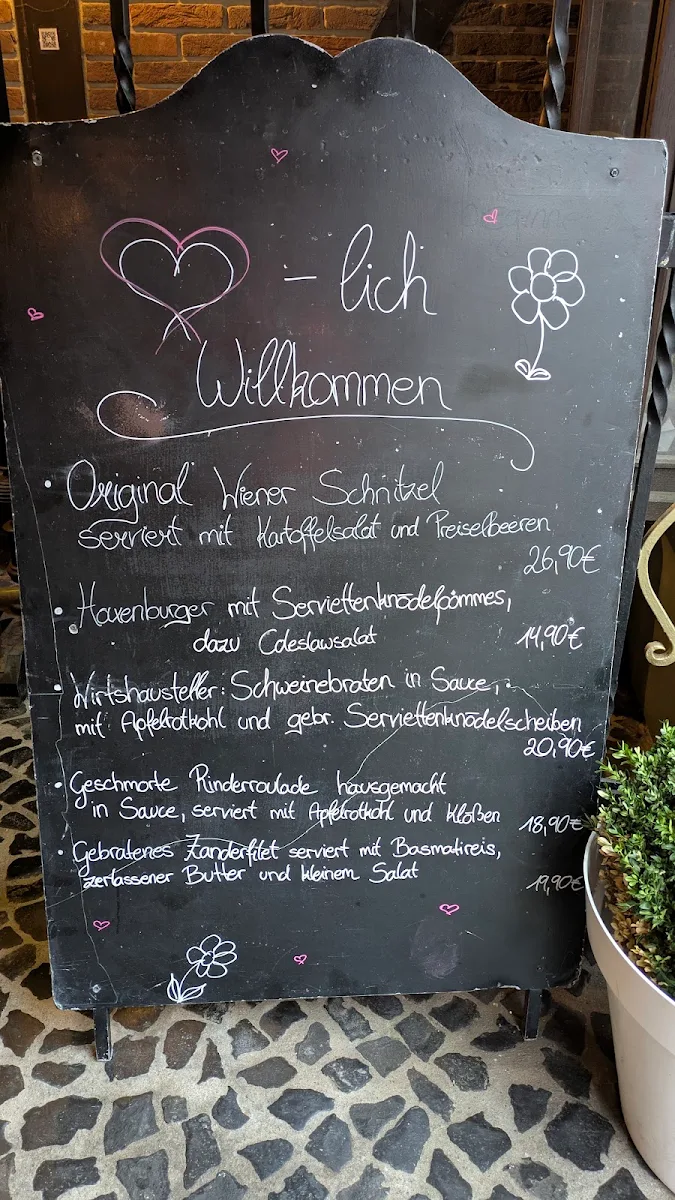 - lich
Willkommen
• Original Wiener Schnitzel
serviert mit Kartoffelsalat und Preiselbeeren
26,90€
• Haxenburger mit Serviettenknödelpommes,
dazu Coleslawsalat 14,90€
• Wirtshausteller: Schweinebraten in Sauce,
mit Apfelrotkohl und gebr. Serviettenknödelscheiben
20,90€
• Geschmorte Rinderroulade hausgemacht
in Sauce, serviert mit Apfelrotkohl und Klößen 18,90€
• Gebratenes Zanderfilet serviert mit Basmatireis,
zerlassener Butter und kleinem Salat 19,90€